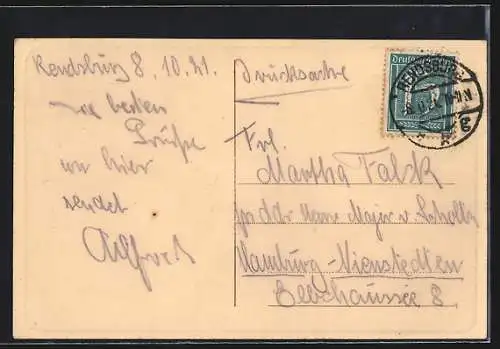 Rendsburg 8. 10. 21.
besten
Grüße
von hier
sendet
Alfred
Drucksache
Frl.
Martha Falck
Major v.
Hamburg-Nienstedten
Elbchaussee 8
Deutsches
RENDSBURG